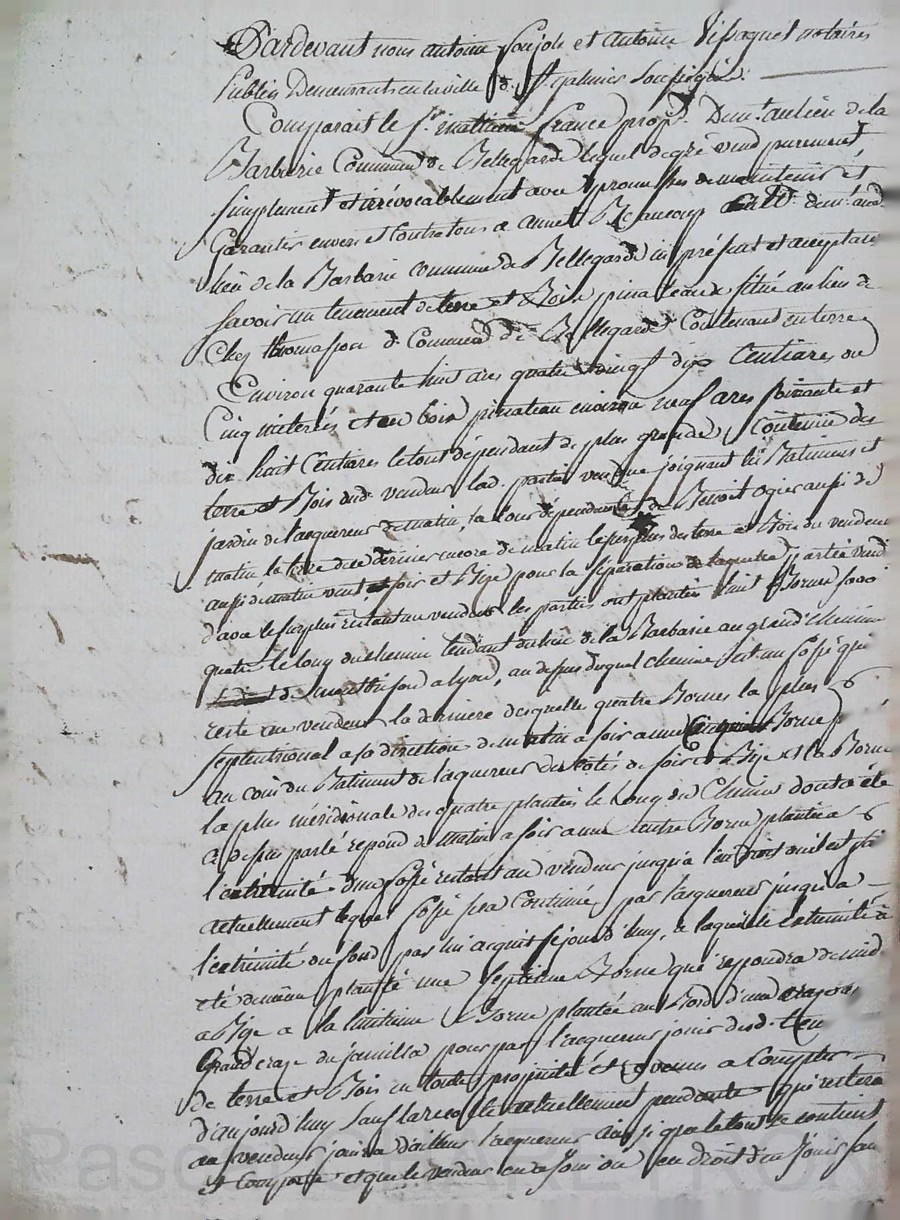 Pardevant nous antoine et antoine notaires
Publics Demeurants en la ville de St galmier Soussignés.
Comparait le Sr. mathieu france propre. Demt. au lieu de la
Barbarie Commune de Bellegarde lequel de gré vend purement,
simplement et irrévocablement avec promesses de maintenir et
Garantir envers et contre tous a demt. aud.
lieu de la Barbarie commune de Bellegarde ici présent et acceptant
savoir un tenement de terre et Bois pinateaux situé au lieu de
Chez thomasson d. Commune de Bellegarde Contenant en terre
Environ quarante huit ares quatre vingt dix Centiares ou
Cinq meterés et en bois pinateau environ neuf ares soixante et
dix huit Centiares le tout dépendant de plus grande Contenue des
terre et Bois dud. vendeur lad. partie vendue joignant les Batiments et
jardin de l'acquereur de matin, la Cour dépendante de Benoit ogier aussi de
matin, la terre de ce dernier encore de matin le surplus des terre et Bois du vendeur
aussi de matin vent et soir et Bize pour la séparation de laquelle partie vend
d'avec le surplus restant au vendeur les parties ont planté huit Bornes savoir
quatre le long du chemin tendant du lieu de la Barbarie au grand Chemin
de montbrison a lyon, au dessus duquel chemin est un fossé qui
reste au vendeur la derniere desquelle quatre Bornes la plus
septentrional a sa direction de matin a soir a une Cinquieme Borne
au coin du Batiment de l'acquereur des cotés de soir et Bize et la Borne
la plus méridionale des quatre plantées le long du Chemin dont a été
ci dessus parlé repond de matin a soir a une autre Borne plantée a
l'extremité d'un fossé restant au vendeur jusqu'a l'endroit ou il est
actuellement lequel fossé sera Continué par l'acquereur jusqu'a
l'extrémité du fond par lui acquit cejourd'huy, a laquelle extrémité a
été de même planté une septieme Borne qui repondra de midi
a Bize a la huitieme Borne plantée au Bord d'une
Grand craze du pour par l'acquereur jouir desd. ten
de terre et Bois en toute propriété et revenus a Compter
d'aujourd'huy sauf la recolte actuellement pendante qui restera
au vendeur jouira d'ailleurs l'acquereur ainsi que le tout se contient
et Comporte et que le vendeur en a joui ou en droit d'en jouir sans